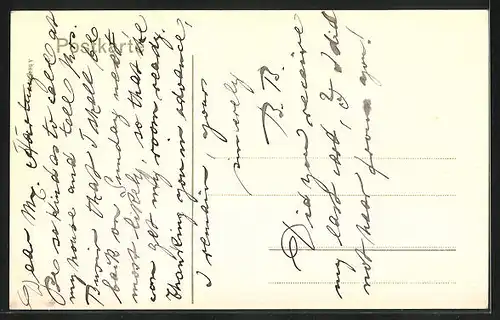 Postkarte
Dear Mr. Hartung
Be so kind as to call at
my house and tell Mrs.
that I shall be
back on Sunday next
most likely, so that she
can get my room ready.
Thanking you in advance,
I remain, yours
sincerely
B. B.
Did you receive
my last card, I did
not hear from you!